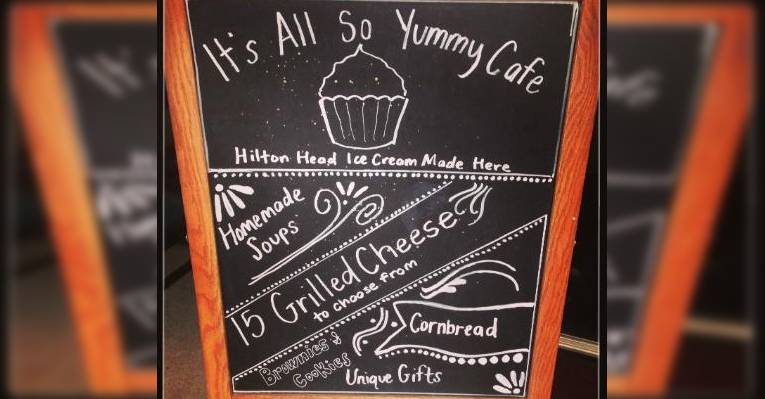 It's All So Yummy Cafe
Hilton Head Ice Cream Made Here
Homemade
Soups
15 Grilled Cheese
to choose from
Cornbread
Brownies &
Cookies
Unique Gifts